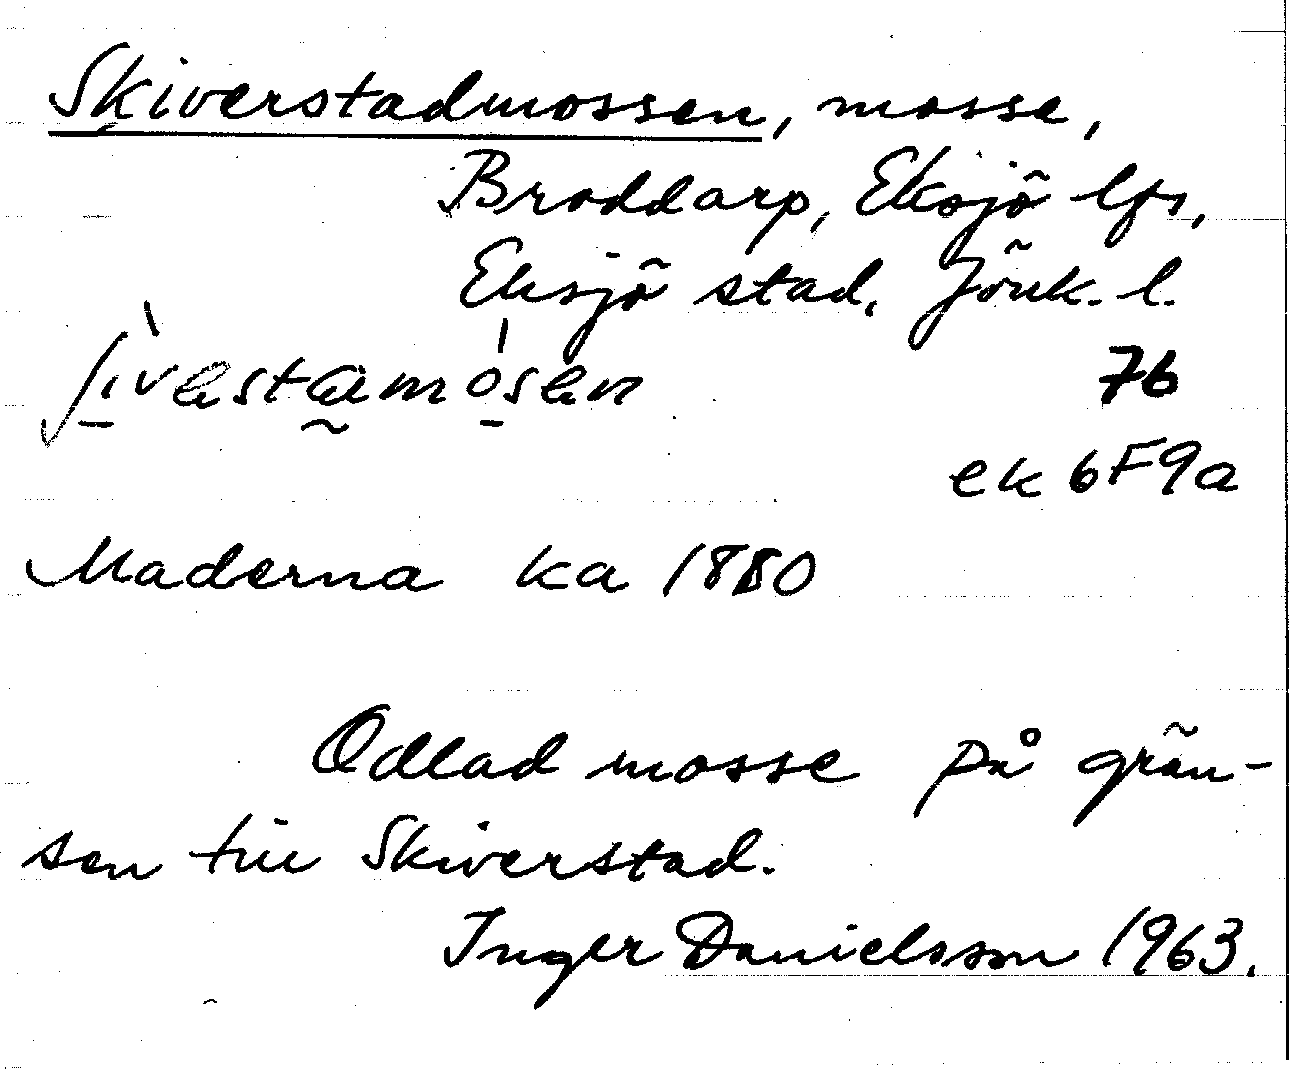 Skiverstadmossen, mosse,
Broddarp, Eksjö lfs,
Eksjö stad. Jönk. l.
76
ek 6F9a
Maderna ka 1880
Odlad mosse på grän-
sen till Skiverstad.
Inger Danielsson 1963.